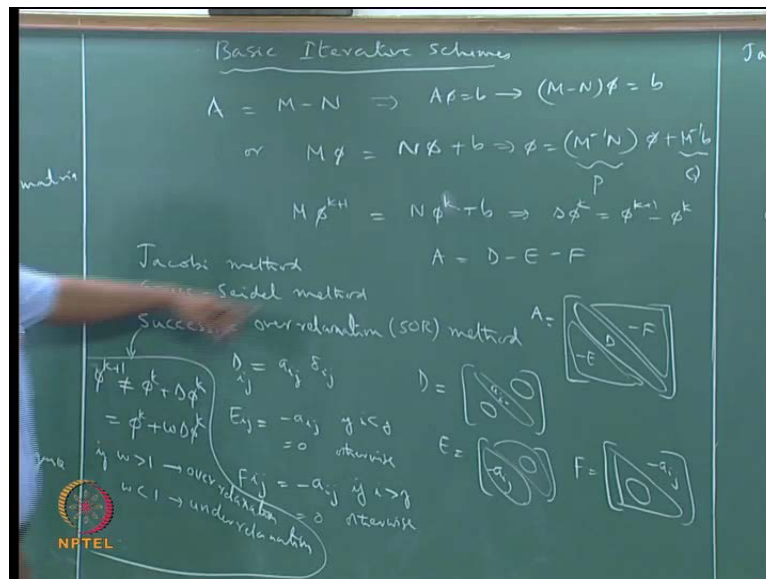 Basic Iterative Schemes
Ja
A = M - N ⇒ Aø = b → (M-N)ø = b
or Mø = Nø + b ⇒ ø = (M⁻¹N) ø + M⁻¹b
P
matrix
M ø^{k+1} = N ø^k + b ⇒ Δø^k = ø^{k+1} - ø^k
Jacobi method
A = D - E - F
Seidel method
Success over relaxation (SOR) method
A = [ -E D -F ]
ø^{k+1} ≠ ø^k + Δø^k
= ø^k + ωΔø^k
if ω>1 → over relaxation
ω<1 → underrelaxation
D_{ij} = a_{ij} δ_{ij}
E_{ij} = -a_{ij} if i<j
= 0 otherwise
F_{ij} = -a_{ij} if i>j
= 0 otherwise
D = [ 0 a_{ii} 0 ]
E = [ -a_{ij} 0 ]
F = [ 0 -a_{ij} ]
NPTEL